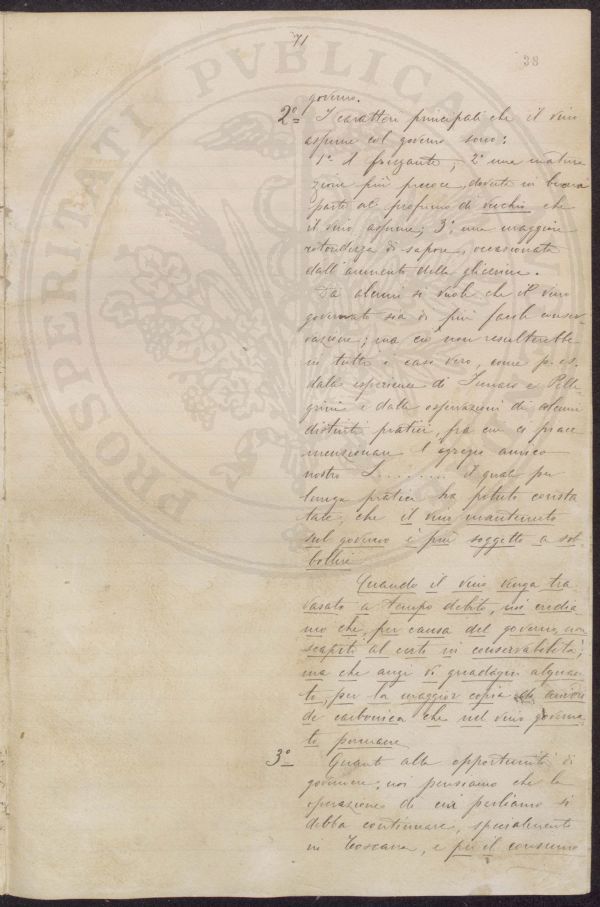 71
38
governo.
2º I caratteri principali che il vino
assume col governo sono:
1º Il frizzante; 2º una matura
zione più precoce, dovuta in buona
parte al profumo di vecchio che
il vino assume; 3º una maggiore
rotondezza di sapore, occasionata
dall'aumento della glicerina.
Da alcuni si vuole che il vino
governato sia di più facile conser-
vazione; ma ciò non resulterebbe
in tutti i casi vero, come p. es.
dalle esperienze di e Pelle
grini e dalle osservazioni di alcuni
distinti pratici, fra cui ci piace
menzionare l'egregio amico
nostro S......... il quale per
lunga pratica ha potuto consta
tare, che il vino mantenuto
sul governo è più soggetto a sob
bollire
Quando il vino venga tra
vasato a tempo debito, noi credia
mo che, per causa del governo, non
scapiti al certo in conservabilità;
ma che anzi vi guadagni alquan
to, per la maggior copia di anidri
de carbonica che nel vino governa
to permane
3º Quanto alla opportunità di
governare, noi pensiamo che la
operazione di cui parliamo si
debba continuare, specialmente
in Toscana, e per il consumo
PROSPERITATI PVBLICAE